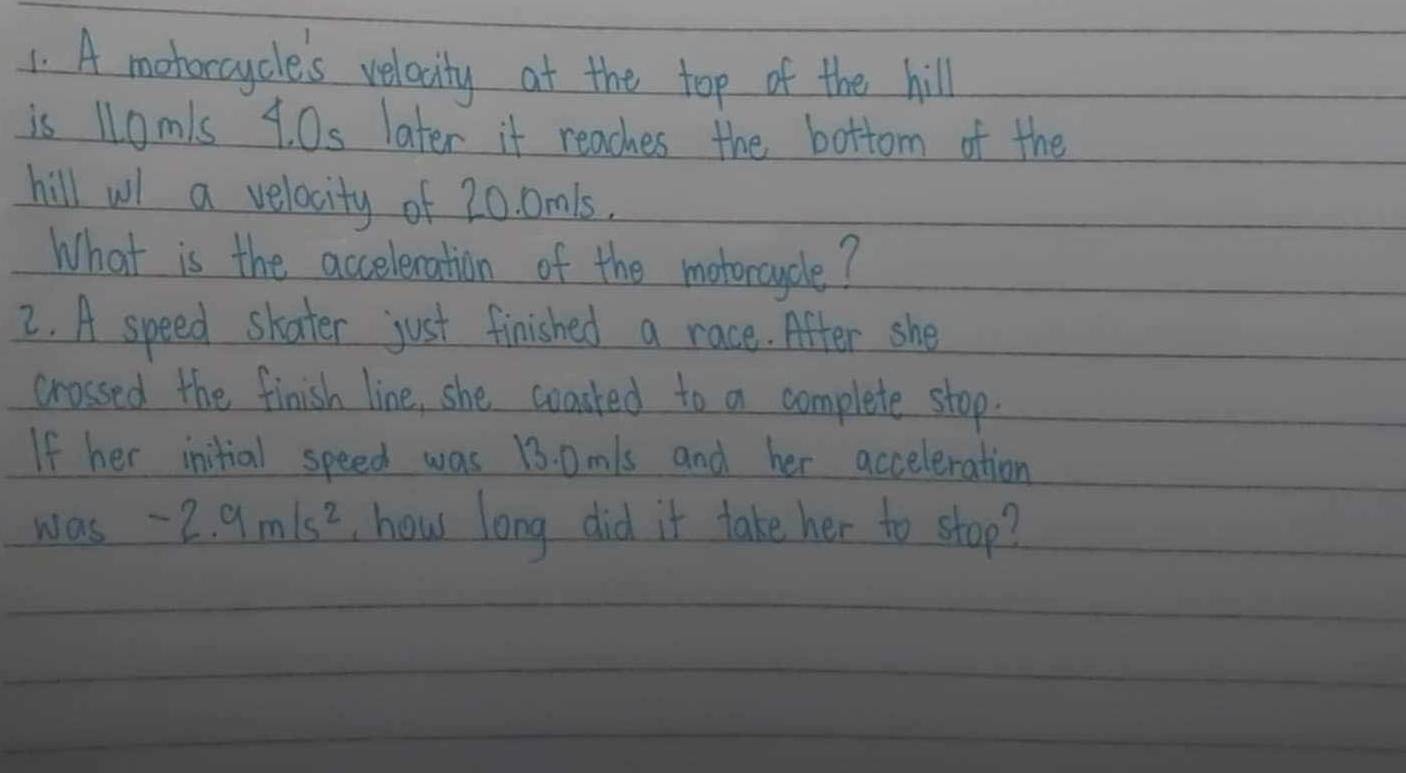 1. A motorcycle's velocity at the top of the hill
is 11.0m/s 4.0s later it reaches the bottom of the
hill w/ a velocity of 20.0m/s.
What is the acceleration of the motorcycle?
2. A speed skater just finished a race. After she
crossed the finish line, she coasted to a complete stop.
If her initial speed was 13.0m/s and her acceleration
was -2.9m/s², how long did it take her to stop?